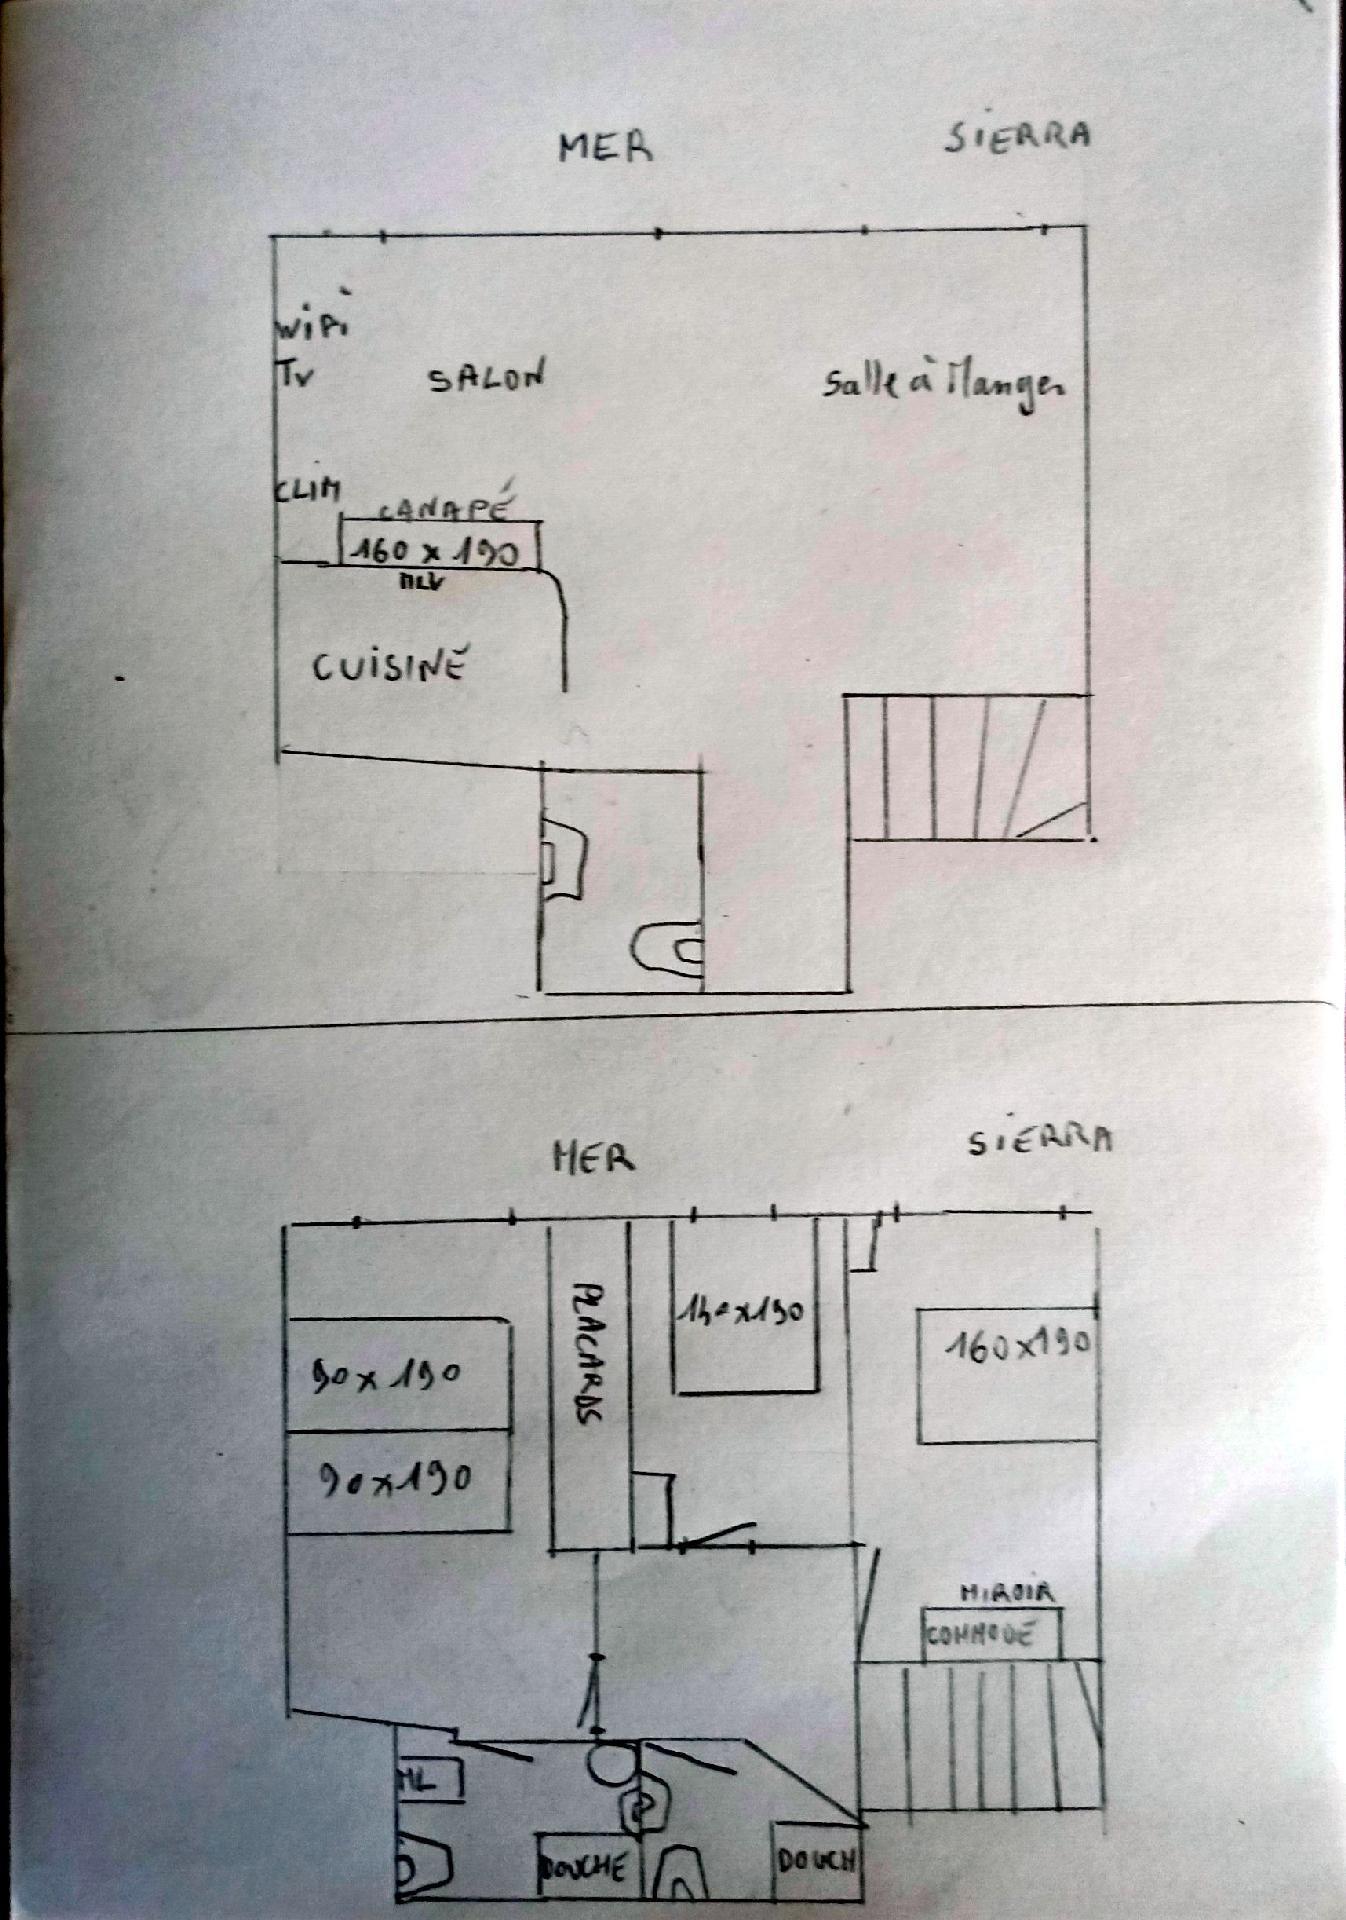 MER
SIERRA
WIFI
TV
SALON
Salle à Manger
CLIM
CANAPÉ
160 x 190
MLV
CUISINE
MER
SIERRA
PLACARDS
140x190
160x190
90x190
90x190
MIROIR
COMMODE
ML
DOUCHE
DOUCH